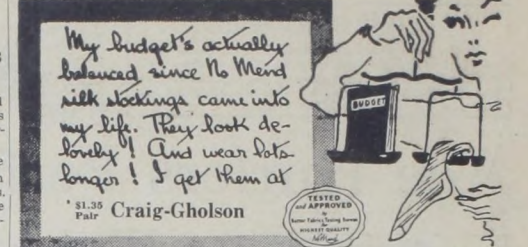 My budget's actually
balanced since No Mend
silk stockings came into
my life. They look de-
lovely! And wear lots
longer! I get them at
$1.35
Pair Craig-Gholson
BUDGET
TESTED
and APPROVED
by
Better Fabrics Testing Bureau
HIGHEST QUALITY